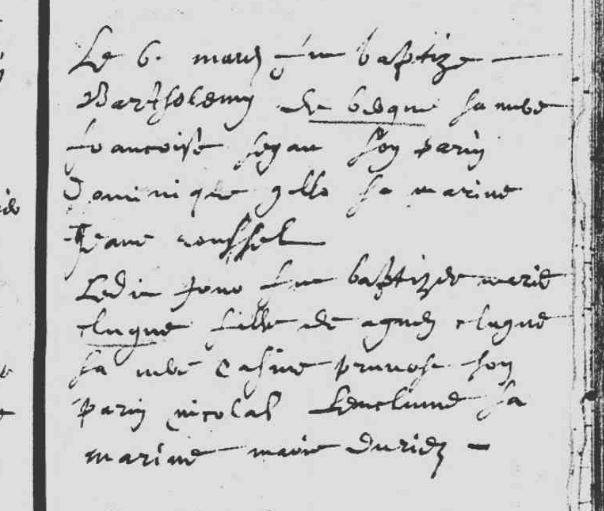 Le 6. mars fut baptize
Bartholemy de becque sa mere
francoise segau son parin
Dominique gillo sa marine
Jeane roussel
Ledit jour fut baptizee marie
cluque fille de agnes cluque
sa mere Casine pruvost son
parin nicolas sa
marine marie duriez